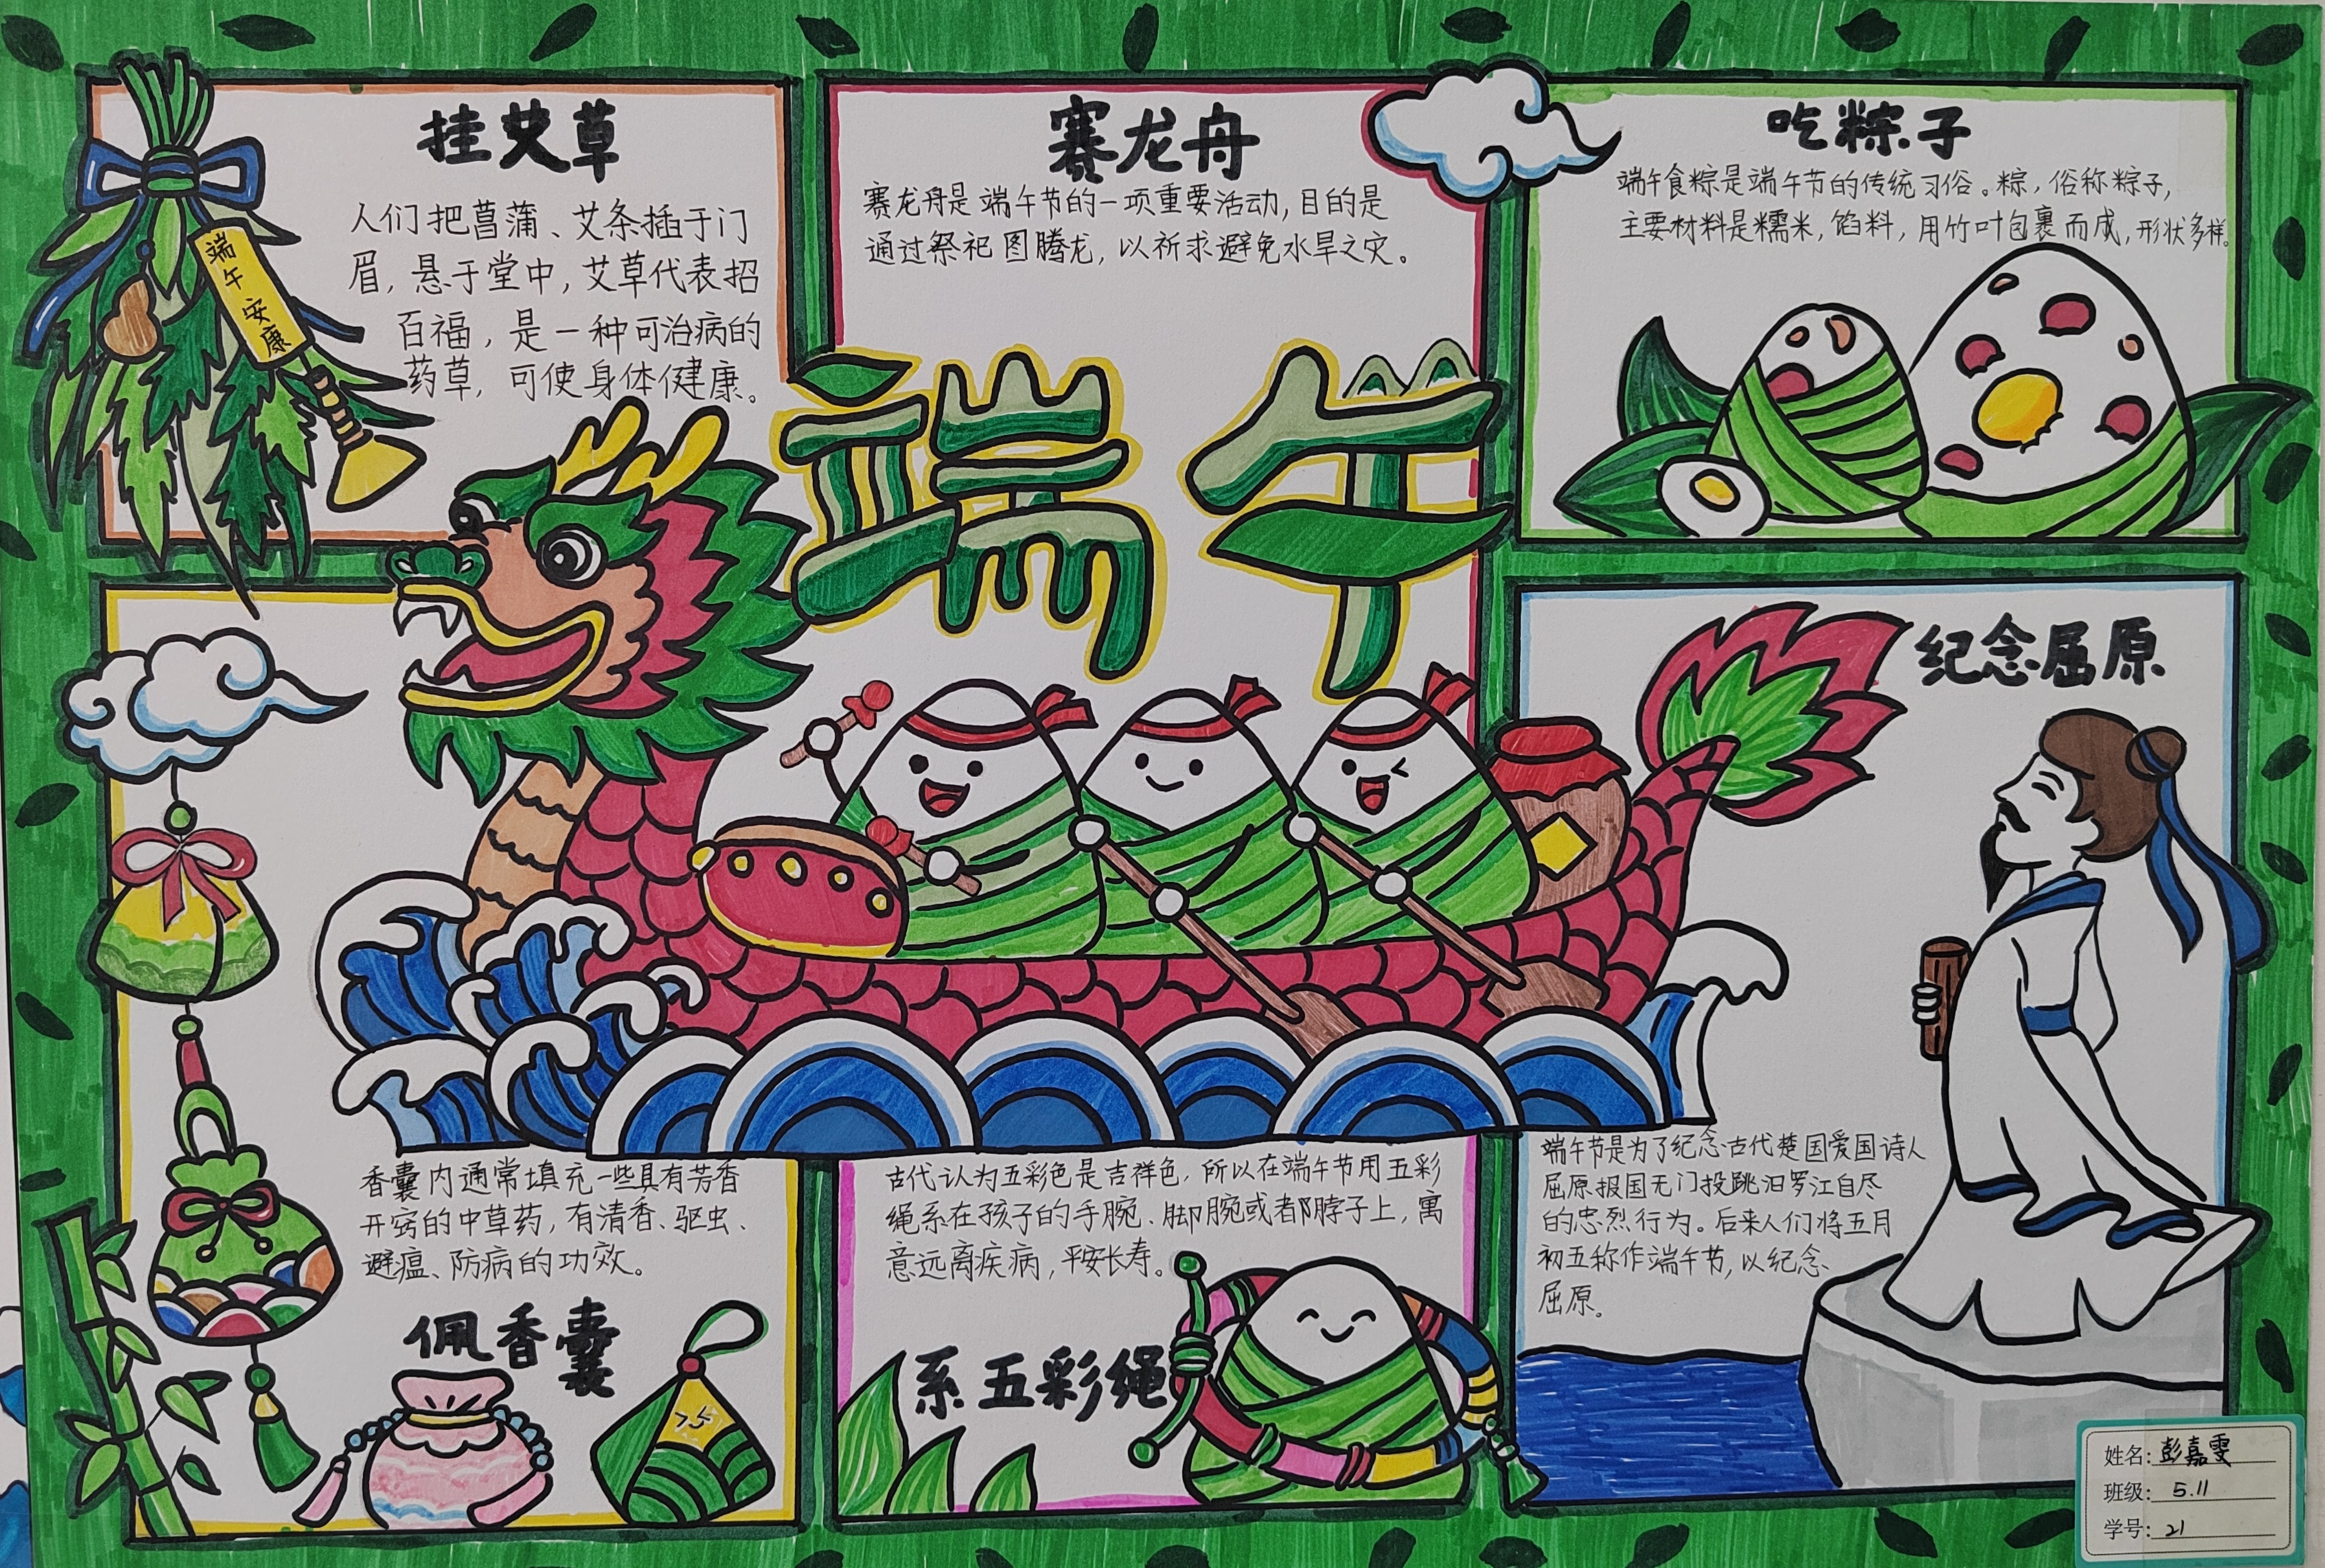 挂艾草
人们把菖蒲、艾条插于门
眉，悬于堂中，艾草代表招
百福，是一种可治病的
药草，可使身体健康。
端午安康
赛龙舟
赛龙舟是端午节的一项重要活动，目的是
通过祭祀图腾龙，以祈求避免水旱之灾。
吃粽子
端午食粽是端午节的传统习俗。粽，俗称粽子，
主要材料是糯米，馅料，用竹叶包裹而成，形状多样。
端午
纪念屈原
端午节是为了纪念古代楚国爱国诗人
屈原报国无门投跳汨罗江自尽
的忠烈行为。后来人们将五月
初五称作端午节，以纪念
屈原。
香囊内通常填充一些具有芳香
开窍的中草药，有清香、驱虫、
避瘟、防病的功效。
佩香囊
古代认为五彩色是吉祥色，所以在端午节用五彩
绳系在孩子的手腕、脚腕或者脖子上，寓
意远离疾病，平安长寿。
系五彩绳
姓名：彭嘉雯
班级：5.11
学号：21